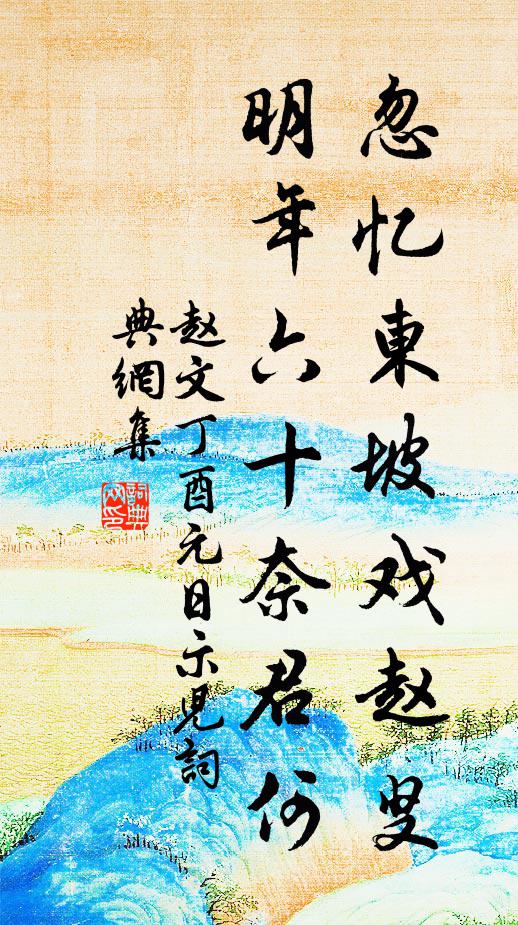 忽忆東坡戏赵叟
明年六十奈君何
赵文丁酉元日示兒詞
典網集
詞典网印